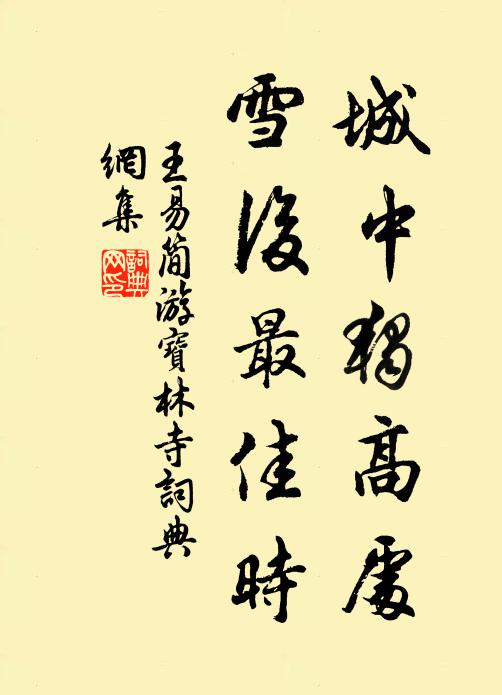 城中獨高處
雪後最佳時
王易簡游寶林寺詞典
網集
詞典
网印